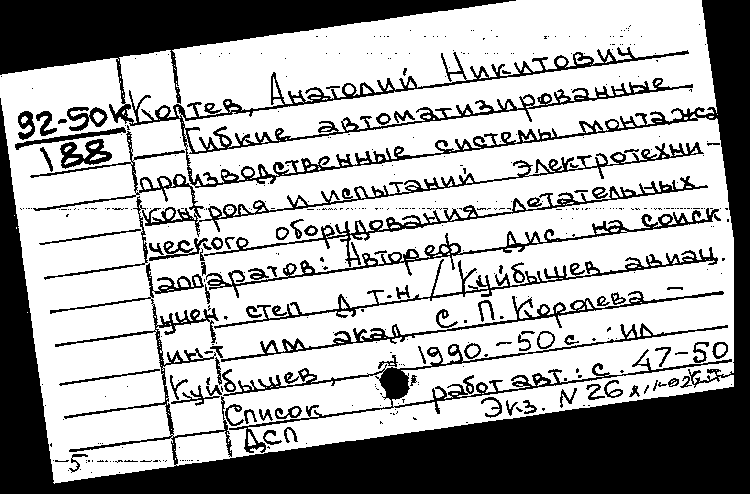 92-50к
188
Коптев, Анатолий Никитович
Гибкие автоматизированные
производственные системы монтажа
контроля и испытаний электротехни-
ческого оборудования летательных
аппаратов: Автореф. дис. на соиск.
учен. степ д.т.н. / Куйбышев авиац.
ин-т им. акад. С. П. Королева -
Куйбышев, 1990. - 50 с. : ил.
Список работ авт.: с. 47-50
ДСП Экз. N 26
5